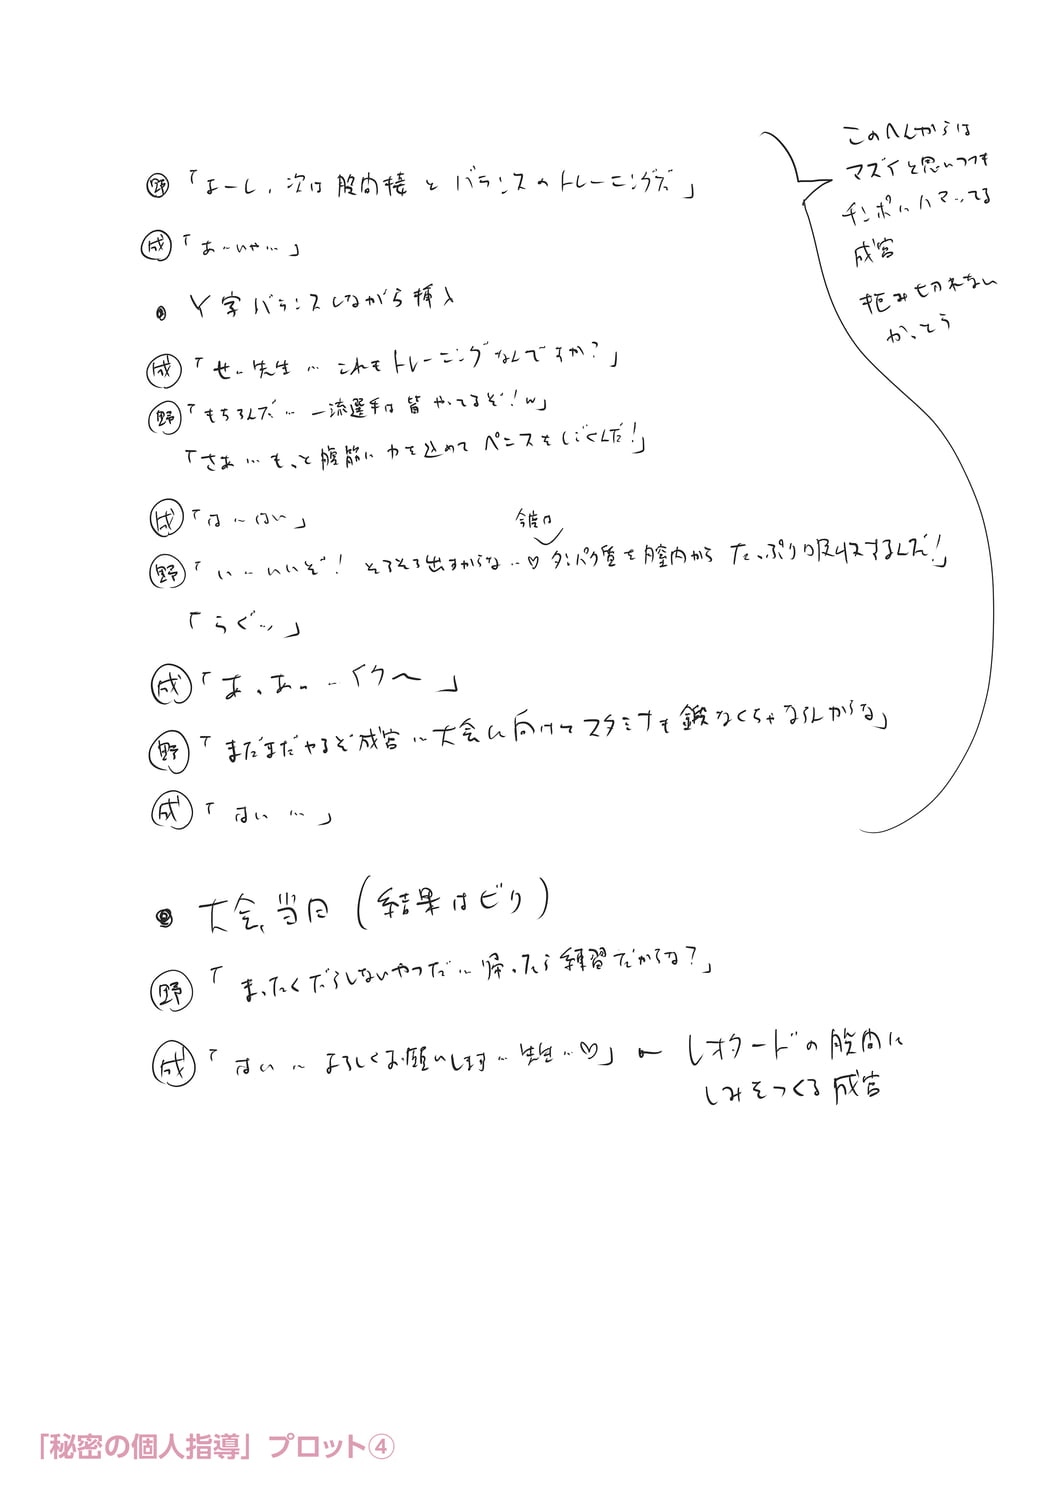 野「よーし、次は股関接とバランスのトレーニングだ」
成「あ…いや…」
・Y字バランスしながら挿入
成「せ…先生… これもトレーニングなんですか?」
野「もちろんだ… 一流選手は皆やってるぞ!w」
「さあ…もっと腹筋に力を込めてペニスをしごくんだ!」
成「は…はい」
今度は
野「い…いいぞ! そろそろ出すからな…♡タンパク質を膣内からたっぷり吸収するんだ!」
「うぐ…」
成「あ、あ…イク〜」
野「まだまだやるぞ成宮…大会に向けてスタミナも鍛なくちゃならんからな」
成「はい…」
このへんからは
マズイと思いつつも
チンポにハマってる
成宮
拒み切れない
かっとう
・大会当日(結果はビリ)
野「まったくだらしないやつだ…帰ったら練習だからな?」
成「はい…よろしくお願いします…先生…♡」← レオタードの股間に
しみをつくる成宮
「秘密の個人指導」プロット④